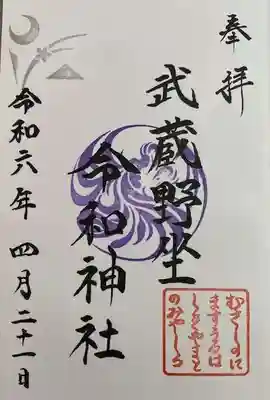 奉拝
武蔵野坐
令和神社
むさしのに
ますうるは
しきやまと
のみやしろ
令和六年 四月二十一日